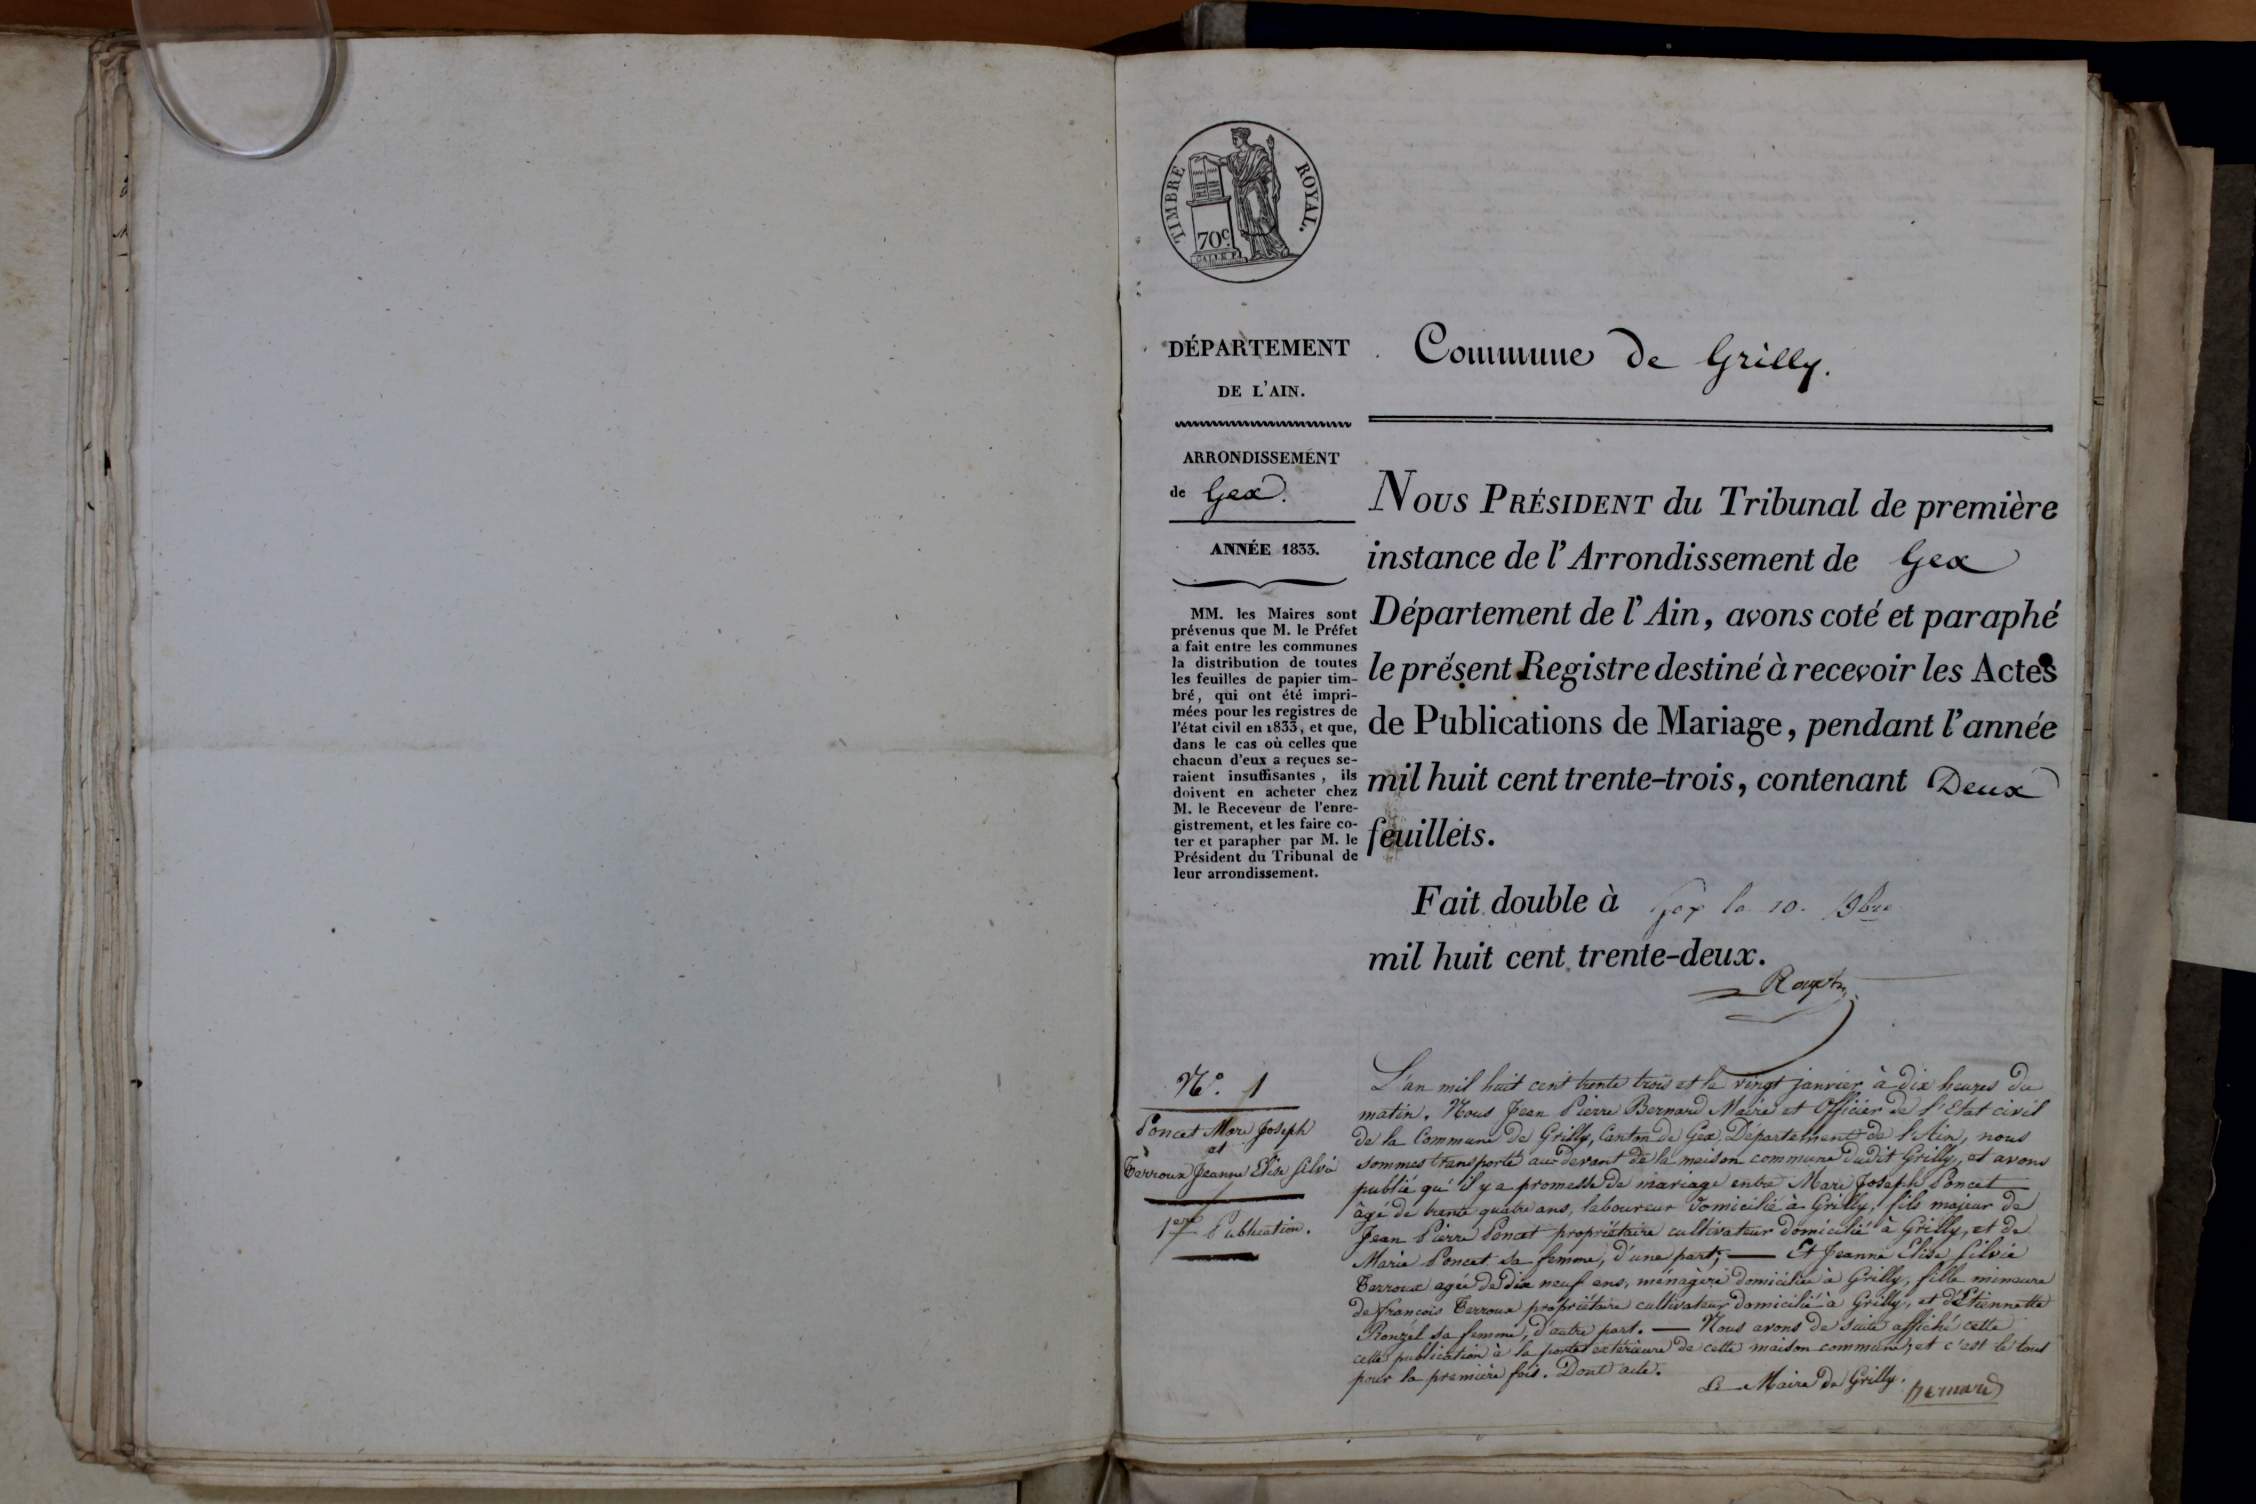 TIMBRE ROYAL.
70c.
Commune de Grilly.
DÉPARTEMENT
DE L'AIN.
ARRONDISSEMENT
de Gex.
ANNÉE 1833.
MM. les Maires sont
prévenus que M. le Préfet
a fait entre les communes
la distribution de toutes
les feuilles de papier tim-
bré, qui ont été impri-
mées pour les registres de
l'état civil en 1833, et que,
dans le cas où celles que
chacun d'eux a reçues se-
raient insuffisantes, ils
doivent en acheter chez
M. le Receveur de l'enre-
gistrement, et les faire co-
ter et parapher par M. le
Président du Tribunal de
leur arrondissement.
NOUS PRÉSIDENT du Tribunal de première
instance de l'Arrondissement de Gex
Département de l'Ain, avons coté et paraphé
le présent Registre destiné à recevoir les Actes
de Publications de Mariage, pendant l'année
mil huit cent trente-trois, contenant Deux
feuillets.
Fait double à Gex le 10.
mil huit cent trente-deux.
No. 1
Poncet Marc Joseph
et
Terroux Jeanne Elise Silvie
1ere Publication.
L'an mil huit cent trente trois et le vingt janvier à dix heures du
matin. Nous Jean Pierre Bernard Maire et Officier de l'Etat civil
de la Commune de Grilly, Canton de Gex, Département de l'Ain, nous
sommes transporté au devant de la maison commune dudit Grilly, et avons
publié qu'il y a promesse de mariage entre Marc Joseph Poncet
âgé de trente quatre ans, laboureur domicilié à Grilly, fils majeur de
Jean Pierre Poncet propriétaire cultivateur domicilié à Grilly, et de
Marie Poncet sa femme, d'une part; — Et Jeanne Elise Silvie
Terroux agée de dix neuf ans, ménagère domiciliée à Grilly, fille mineure
de françois Terroux propriétaire cultivateur domicilié à Grilly, et d'Etiennette
sa femme, d'autre part. — Nous avons de suite affiché cette
cette publication à la porte extérieure de cette maison commune, et c'est le tout
pour la première fois. Dont acte.
Le Maire de Grilly.
Bernard